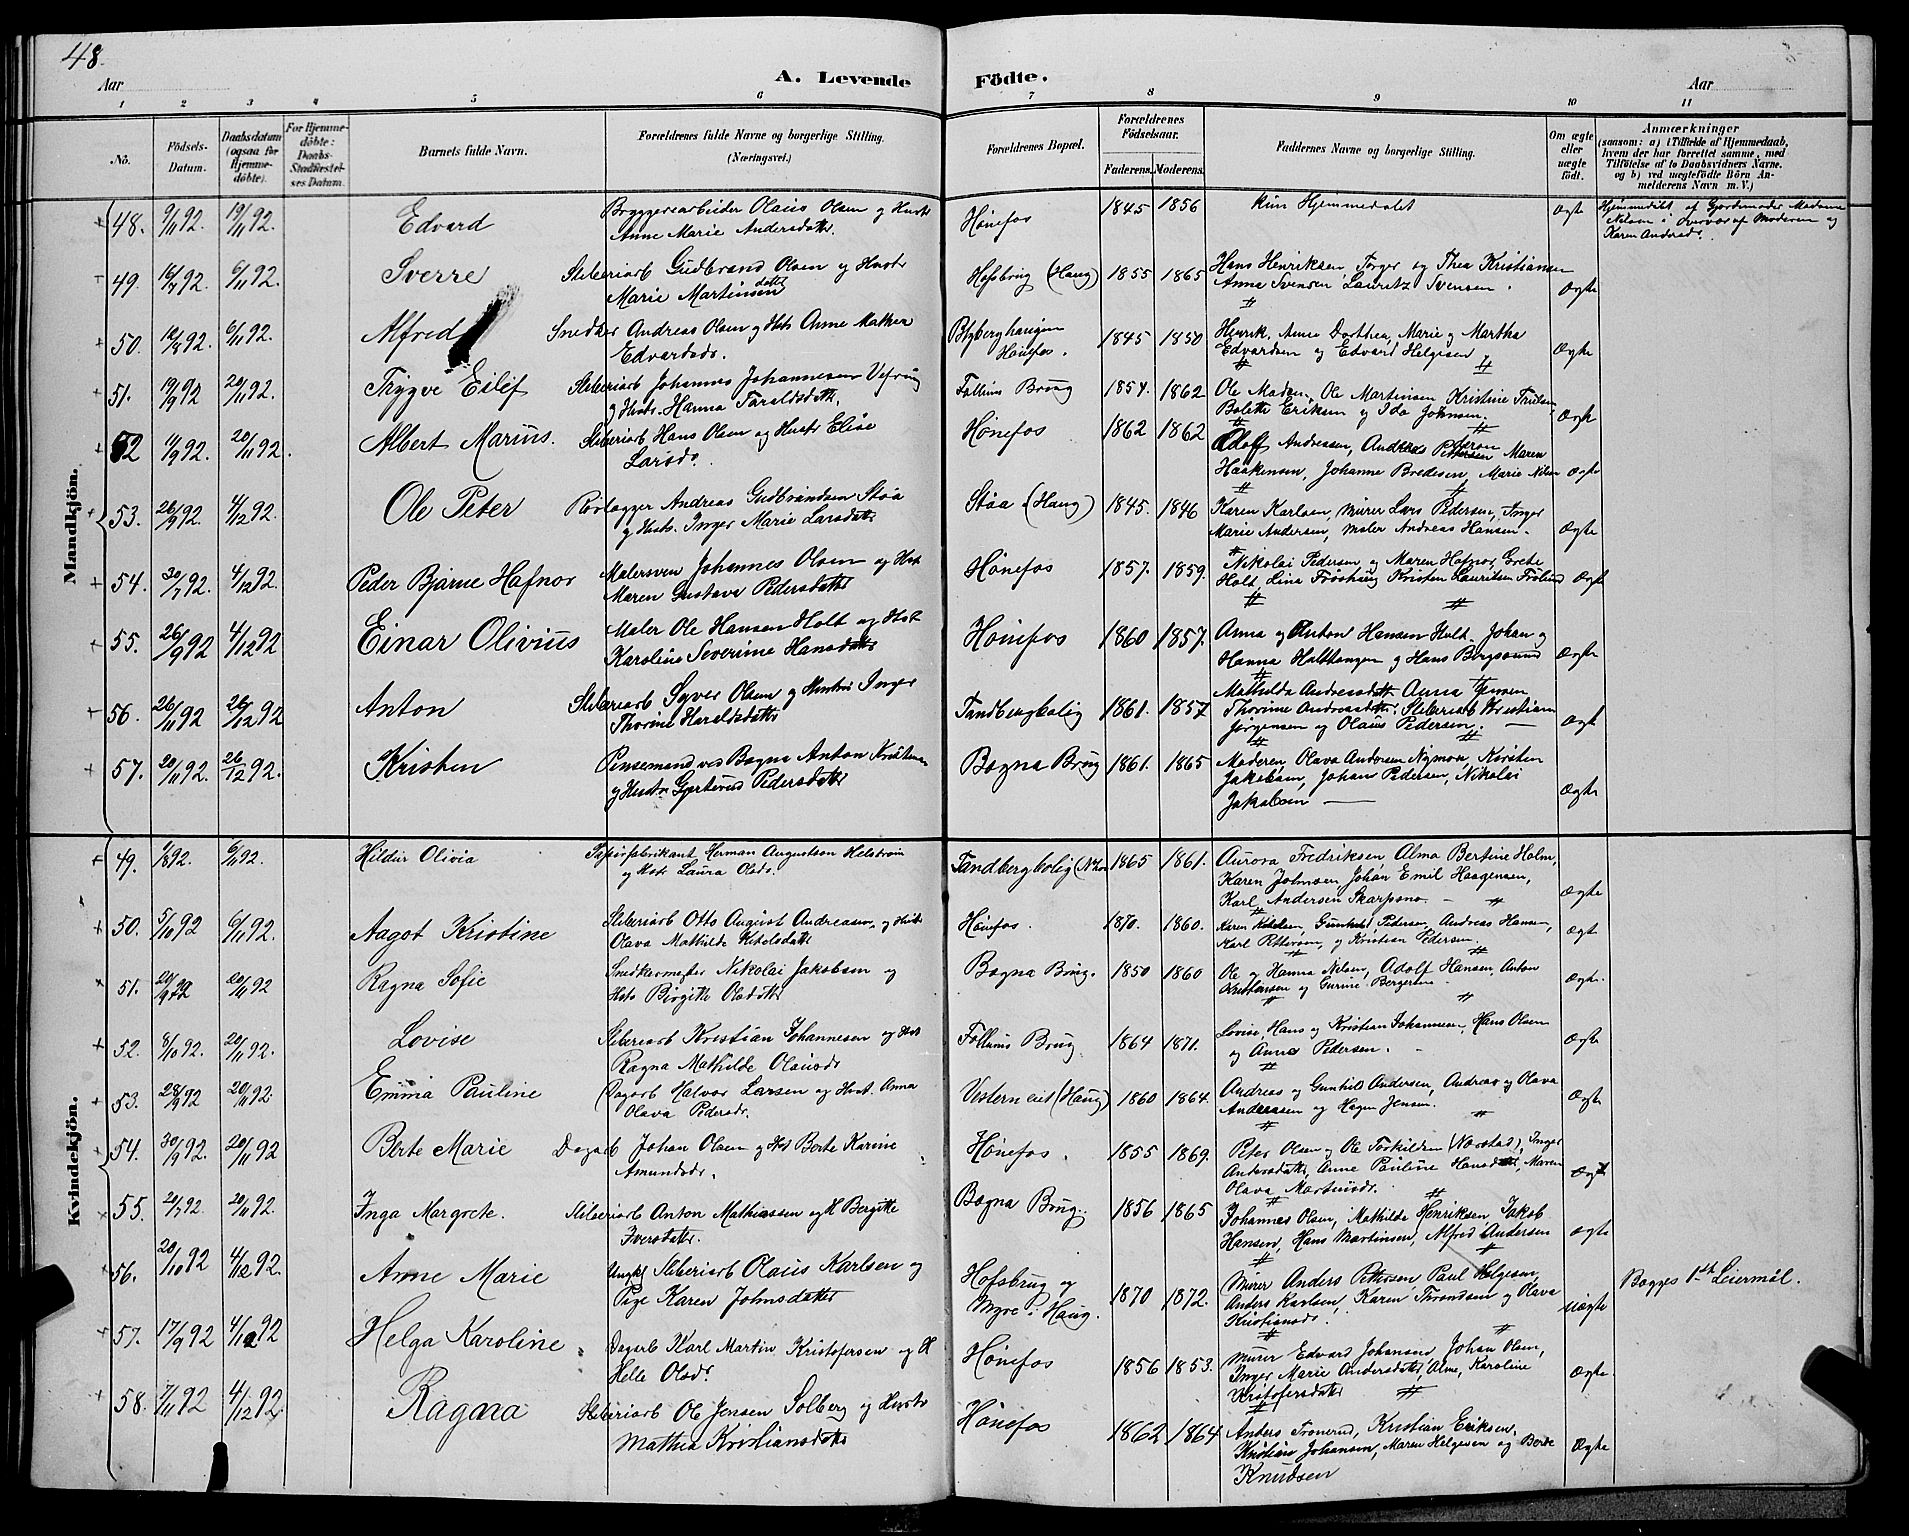 48.
Aar
A. Levende
Födte.
Aar
1 2 3 4 5 6 7 8 9 10 11
No.
Födsels-
Datum.
Daabsdatum
(ogsaa for
Hjemme-
döbte).
For Hjemme-
döbte:
Daabs-
Stadfæstel-
ses Datum.
Barnets fulde Navn.
Forældrenes fulde Navne og borgerlige Stilling.
(Næringsvei.)
Forældrenes Bopæl.
Forældrenes
Födselsaar.
Faderens. Moderens.
Faddernes Navne og borgerlige Stilling.
Om ægte
eller
uægte
födt.
Anmærkninger
(saasom: a) i Tilfælde af Hjemmedaab,
hvem der har forrettet samme, med
Tilföielse af to Daabsvidners Navne,
og b) ved uægtefödte Börn An-
melderens Navn m. V.)
Mandkjön.
48. 9/11 92. 19/11 92. Edvard
Bryggeriarbeider Olaus Olsen og Hustr
Anne Marie Andersdattr.
Hønefos 1845 1856
kun Hjemmedøbt
Ægte
Hjemmedøbt af Gjordemoder Madame
Nilsen i Overvær af Moderen og
Karen Andersdr.
49. 16/7 92. 6/11 92. Sverre
Sliberiarb Gudbrand Olsen og Hustr
Marie Martinsendatter
Hofsbrug (Haug) 1855 1865
Hans Henriksen, Torger og Thea Kristiansen
Anna Svensen Lauritz Svensen.
Ægte
50. 12/8 92. 6/11 92. Alfred
Snedker Andreas Olsen og Hstr Anne Mathea
Edvardsdr.
Blyberghaugen
Hønefos. 1845 1850
Henrik, Anne Dorthea, Marie og Martha
Edvardsen og Edvard Helgesen
Ægte
51. 19/9 92 20/11 92. Trygve Eilef
Sliberiarb Johannes Johannesen
og Hustr. Hanna Taraldsdattr.
Follums Brug 1857. 1862
Ole Madsen, Ole Martinsen Kristine
Bolette Eriksen og Ida Johnsen.
Ægte
52 11/9 92. 20/11 92. Albert Marius.
Sliberiarb Hans Olsen og Hustr Elise
Larsdr.
Hønefos 1862 1862
Adolf Andressen, Andreas Pettersen Maren
Haakensen, Johanne Bredesen, Marie Nilsen
Ægte
53. 26/9 92. 4/12 92. Ole Peter
Rørlægger Andreas Gudbrandsen Støa
og Hustr. Inger Marie Larsdattr
Støa (Haug) 1845. 1846
Karen Karlsen, Murer Lars Pedersen, Inger
Marie Andersen, Maler Andreas Hansen.
Ægte
54. 30/7 92. 4/12 92. Peder Bjarne Hafnor
Malersven Johannes Olsen og Hstr
Maren Gustava Pedersdattr
Hønefos 1857. 1859.
Nikolai Pedersen og Maren Hafnor, Grete
Holt Lina Frøshaug Kristen Lauritsen Frølund
Ægte
55. 26/9 92 4/12 92 Einar Olivius
Maler Ole Hansen Holt og Hstr
Karoline Severine Hansdattr
Hønefos 1860 1857.
Anna og Anton Hansen Holt. Johan og
Hanna Holthaugen og Hans Bergsund
Ægte
56. 26/11 92 26/12 92 Anton
Sliberiarb Syver Olsen og Hustru Inger
Thorine Haraldsdattr
Tandbergbolig 1861. 1857
Mathilda Andreasdatt. Anna
Thorine Andreasdattr. Sliberiarb Kristian
Jørgensen og Olaus Pedersen.
Ægte
57. 20/11 92. 26/12 92. Kristen
Pensemand ved Bægna Anton Kristensen
og Hustr. Gjertrud Pedersdattr
Bægna Brug 1861. 1865
Moderen, Olava Andersen Nymoen, Kirsten
Jakobsen, Johan Pedersen, Nikolai
Jakobsen
Ægte
Kvindekjön.
49. 1/8 92. 6/11 92. Hildur Olivia
Papirfabrikant Herman Augustson Helstrøm
og Hstr Laura Olsdr.
Tandbergbolig 1865 1861.
Aurora Fredriksen, Alma Bertine Holm,
Karen Johnsen Johan Emil Haagensen,
Karl Andersen Skarpsno.
Ægte
50. 5/10 92 6/11 92. Aagot Kristine
Sliberiarb Otto August Andreasen, og Hustr
Olava Mathilde Ketelsdattr
Hønefos. 1870. 1860.
Karen Ketelsen, Gunhild Pedersen, Andreas Hansen,
Karl Pettersen, og Kristian Pedersen.
Ægt
51. 20/9 92 20/11 92 Ragna Sofie
Snedkermester Nikolai Jakobsen og
Hstr Birgitte Olsdattr
Bægna Brug. 1850 1860
Ole og Hanna Nilsen, Adolf Hansen, Anton
Kristensen og Gurine Bergersen
Ægte.
52. 8/10 92. 20/11 92. Lovise
Sliberiarb Kristian Johannesen og Hstr
Ragna Mathilde Olausdr
Follums Brug 1864 1871.
Lovise, Hans og Kristian Johannesen, Hans Olsen
og Anna Pedersen.
Ægte
53. 28/9 92 20/11 92. Emma Pauline
Dagarb Halvor Larsen og Hust. Anna
Olava Pedersdr.
Vestern eiet (Haug) 1860 1864.
Andreas og Gunhild Andersen, Andreas og Olava
Andreasen og Hagen Jensen.
Ægte
54. 30/9 92. 20/11 92 Berte Marie
Dagarb Johan Olsen og Hst Berte Karine
Amundsdr.
Hønefos. 1855 1869.
Peter Olsen og Ole Torkildsen (Nærstad), Inger
Andersdattr, Anne Pauline Hansdatt, Maren
Olava Martinsdr.
Ægt
55. 20/7 92. 20/11 92. Inga Margrete.
Sliberiarb Anton Mathiassen og H Bergitte
Iversdattr.
Bægna Brug. 1856 1865
Johannes Olsen, Mathilde Henriksen Jakob
Hansen, Hans Martinsen, Alfred Andersen
Ægte
56. 20/10 92 4/12 92. Anne Marie
Ungkl Sliberiarb Olaus Karlsen og
Pige Karen Johnsdatter
Hofsbrug og
Myre i Haug. 1870 1872.
Murer Anders Pettersen Paul Helgesen,
Anders Karlsen, Karen Throndsen og Olava
Kristiansdr.
Uægte
Begges 1ste Leiermål.
57. 17/9 92 4/12 92 Helga Karoline
Dagarb Karl Martin Kristofersen og H
Helle Olsdr.
Hønefos 1856 1853.
Murer Edvard Johansen, Johan Olsen,
Inger Marie Andersdatter, Alme, Karoline
Kristofersdatter
Ægte.
58. 7/11 92 4/12 92 Ragna
Sliberiarb Ole Jensen Solberg og Hustr
Mathea Kristiansdattr
Hønefos 1862 1864
Anders Tronerud, Kristian Eriksen,
Kristian Johansen, Maren Helgesen og Berte
Knudsen
Ægte